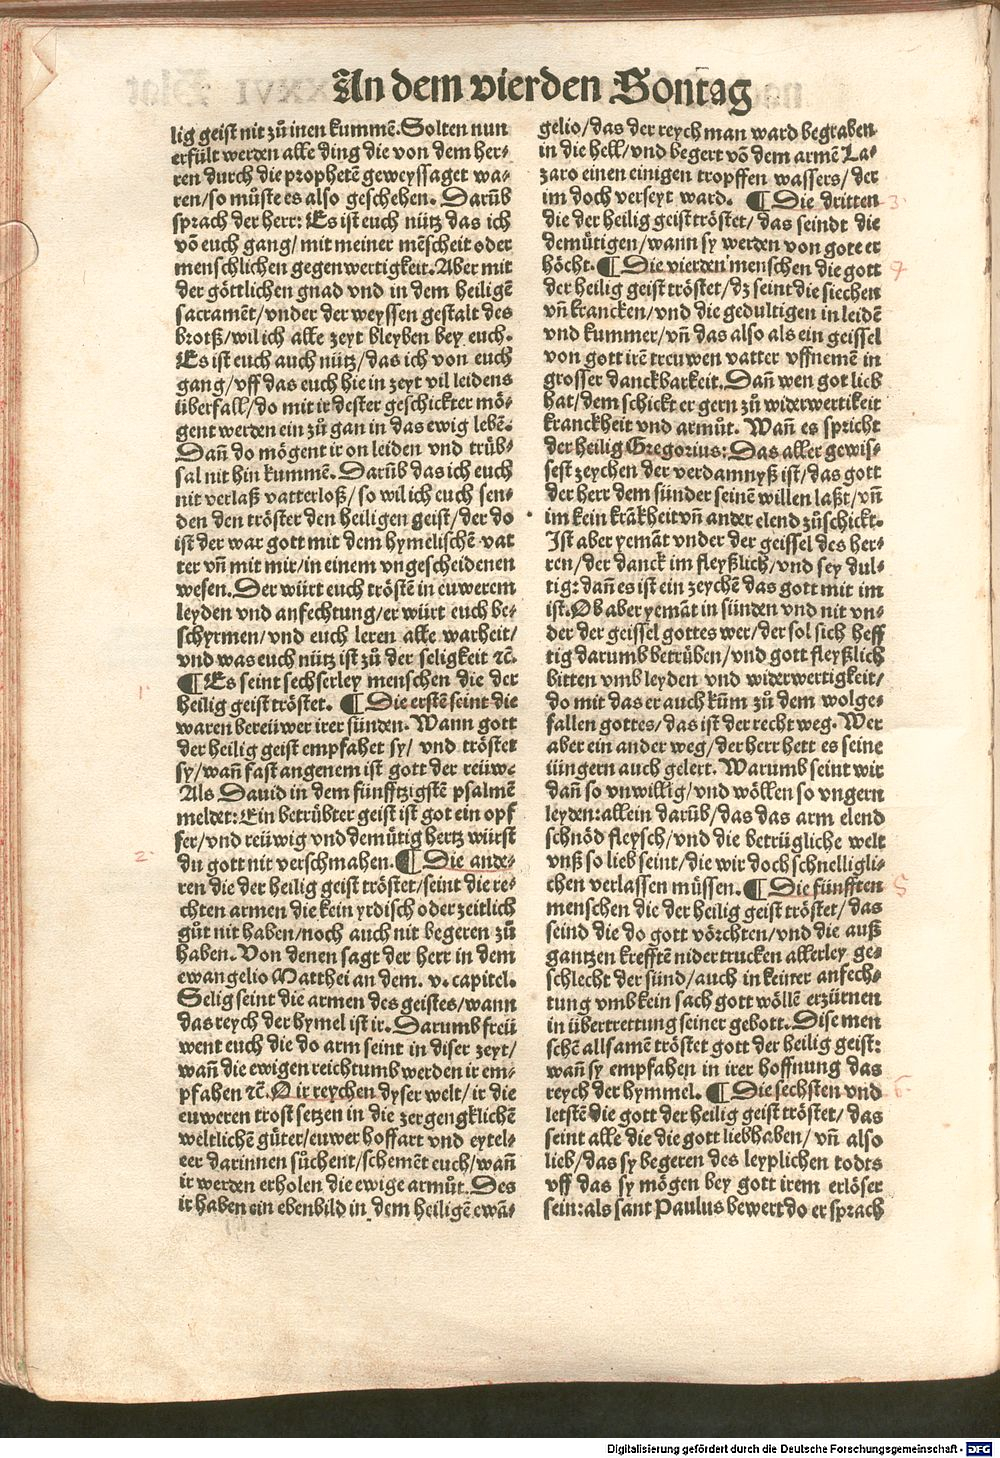 An dem vierden Sontag
lig geist nit zů inen kummē. Solten nun
erfült werden alle ding die von dem her⸗
ren durch die prophetē geweyssaget wa⸗
ren/so můste es also geschehen. Darūb
sprach der herr: Es ist euch nütz das ich
vō euch gang/mit meiner mēscheit oder
menschlichen gegenwertigkeit. Aber mit
der göttlichen gnad vnd in dem heiligē
sacramēt/vnder der weyssen gestalt des
brotß/wil ich alle zeyt bleyben bey euch.
Es ist euch auch nütz/das ich von euch
gang/vff das euch hie in zeyt vil leidens
überfall/do mit ir dester geschickter mö⸗
gent werden ein zů gan in das ewig lebē.
Dañ do mögent ir on leiden vnd trüb⸗
sal nit hin kummē. Darūb das ich euch
nit verlaß vatterloß/so wil ich euch sen⸗
den den tröster den heiligen geist/der do
ist der war gott mit dem hymelischē vat
ter vñ mit mir/in einem vngescheidenen
wesen. Der würt euch tröstē in euwerem
leyden vnd anfechtung/er würt euch be⸗
schyrmen/vnd euch leren alle warheit/
vnd was euch nütz ist zů der seligkeit ⁊c̄.
¶ Es seint sechserley menschen die der
heilig geist tröstet. ¶ Die erstē seint die
1.
waren bereüwer irer sünden. Wann gott
der heilig geist empfahet sy/ vnd tröstet
sy/wañ fast angenem ist gott der reüwe
Als Dauid in dem fünfftzigstē psalmē
meldet: Ein betrübter geist ist got ein opf
fer/vnd reüwig vnd demütig hertz würst
du gott nit verschmahen. ¶ Die ande⸗
2.
ren die der heilig geist tröstet/seint die re⸗
chten armen die kein yrdisch oder zeitlich
gůt nit haben/noch auch nit begeren zů
haben. Von denen sagt der herr in dem
ewangelio Matthei an dem. v. capitel.
Selig seint die armen des geistes/wann
das reych der hymel ist ir. Darumb freü
went euch die do arm seint in diser zeyt/
wañ die ewigen reichtumb werden ir em⸗
pfahen ⁊c̄. O ir reychen dyser welt/ir die
euweren trost setzen in die zergengklichē
weltlichen güter/euwer hoffart vnd eytel⸗
eer darinnen sůchent/schemēt euch/wañ
ir werden erholen die ewige armůt. Des
ir haben ein ebenbild in dem heiligē ewā⸗
gelio/das der reych man ward begraben
in die hell/vnd begert vō dem armē La⸗
zaro einen einigen tropffen wassers/der
im doch verseyt ward. ¶ Die dritten
3.
die der heilig geist tröstet/das seindt die
demütigen/wann sy werden von gote er
höcht. ¶ Die vierden menschen die gott
4
der heilig geist tröstet/dz seint die siechen
vñ krancken/vnd die gedultigen in leidē
vnd kummer/vñ das also als ein geissel
von gott irē treuwen vatter vffnemē in
grosser danckbarkeit. Dañ wen got lieb
hat/dem schickt er gern zů widerwertikeit
kranckheit vnd armůt. Wañ es spricht
der heilig Gregorius: Das aller gewis⸗
sest zeychen der verdamnyß ist/das gott
der herr dem sünder seinē willen laßt/vñ
im kein krākheit vñ ander elend zůschickt.
Ist aber yemāt vnder der geissel des her⸗
ren/der danck im fleyßlich/vnd sey dul⸗
tig: dañ es ist ein zeychē das gott mit im
ist. Ob aber yemāt in sünden vnd nit vn⸗
der der geissel gottes wer/der sol sich heff
tig darumb betrüben/vnd gott fleyßlich
bitten vmb leyden vnd widerwertigkeit/
do mit das er auch kūm zů dem wolge⸗
fallen gottes/das ist der recht weg. Wer
aber ein ander weg/der herr hett es seine
iüngern auch gelert. Warumb seint wir
dañ so vnwillig/vnd wöllen so vngern
leyden: allein darūb/das das arm elend
schnöd fleysch/vnd die betrügliche welt
vnß so lieb seint/die wir doch schnelligli⸗
chen verlassen müssen. ¶ Die fünfften
5
menschen die der heilig geist tröstet/das
seind die do gott vörchten/vnd die auß
gantzen krefften nider trucken allerley ge⸗
schlecht der sünd/auch in keiner anfech⸗
tung vmb kein sach gott wöllē erzürnen
in übertrettung seiner gebott. Dise men
schē allsamē tröstet gott der heilig geist:
wañ sy empfahen in irer hoffnung das
reych der hymmel. ¶ Die sechsten vnd
6.
letstē die gott der heilig geist tröstet/das
seint alle die die gott liebhaben/vñ also
lieb/das sy begeren des leyplichen todts
vff das sy mögen bey gott irem erlöser
sein: als sant Paulus bewert do er sprach
Digitalisierung gefördert durch die Deutsche Forschungsgemeinschaft - DFG